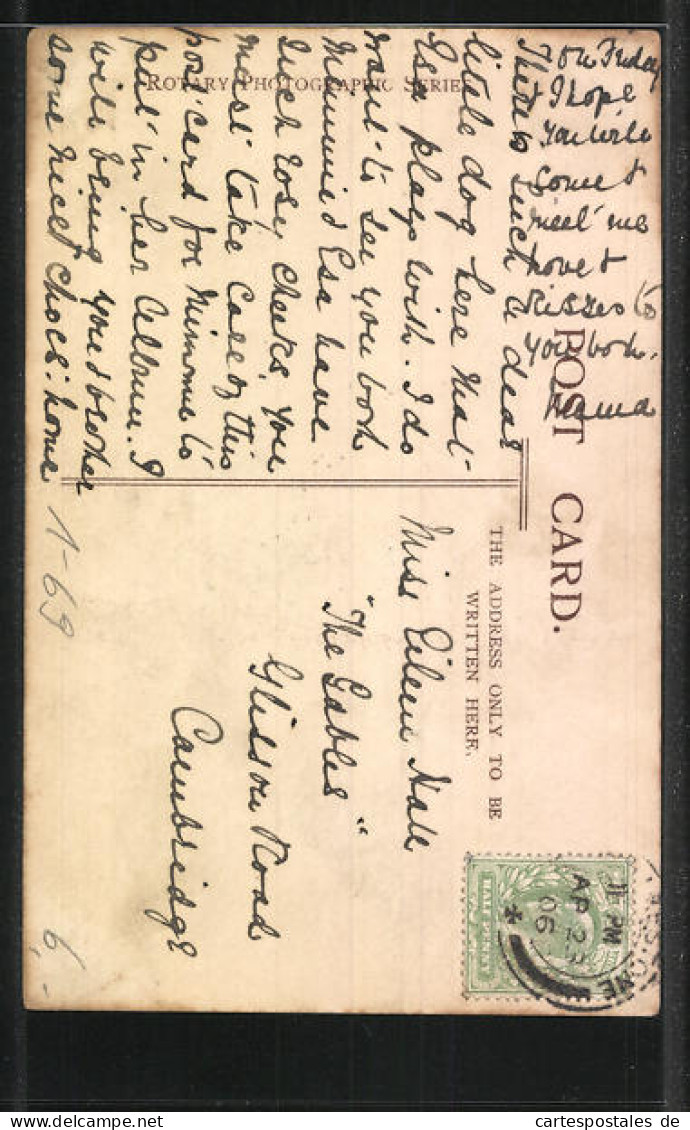 ROTARY PHOTOGRAPHIC SERIES
POST CARD.
THE ADDRESS ONLY TO BE
WRITTEN HERE.
There is such a dear
little dog here that
Esa plays with. I do
want to see you both
Mimmie & Esa have
such rosy cheeks, you
must take care of this
post card for Mimmie to
put in her Album. I
will bring you & brother
some nice chocs: home
on Friday
I hope
you will
come &
meet me
love &
kisses to
you both.
Mama
Miss Eileen Hall
"The Gables"
Glisson Road
Cambridge
1-69
6,-
HALF PENNY
11 PM
AP 2
06
www.cartespostales.de